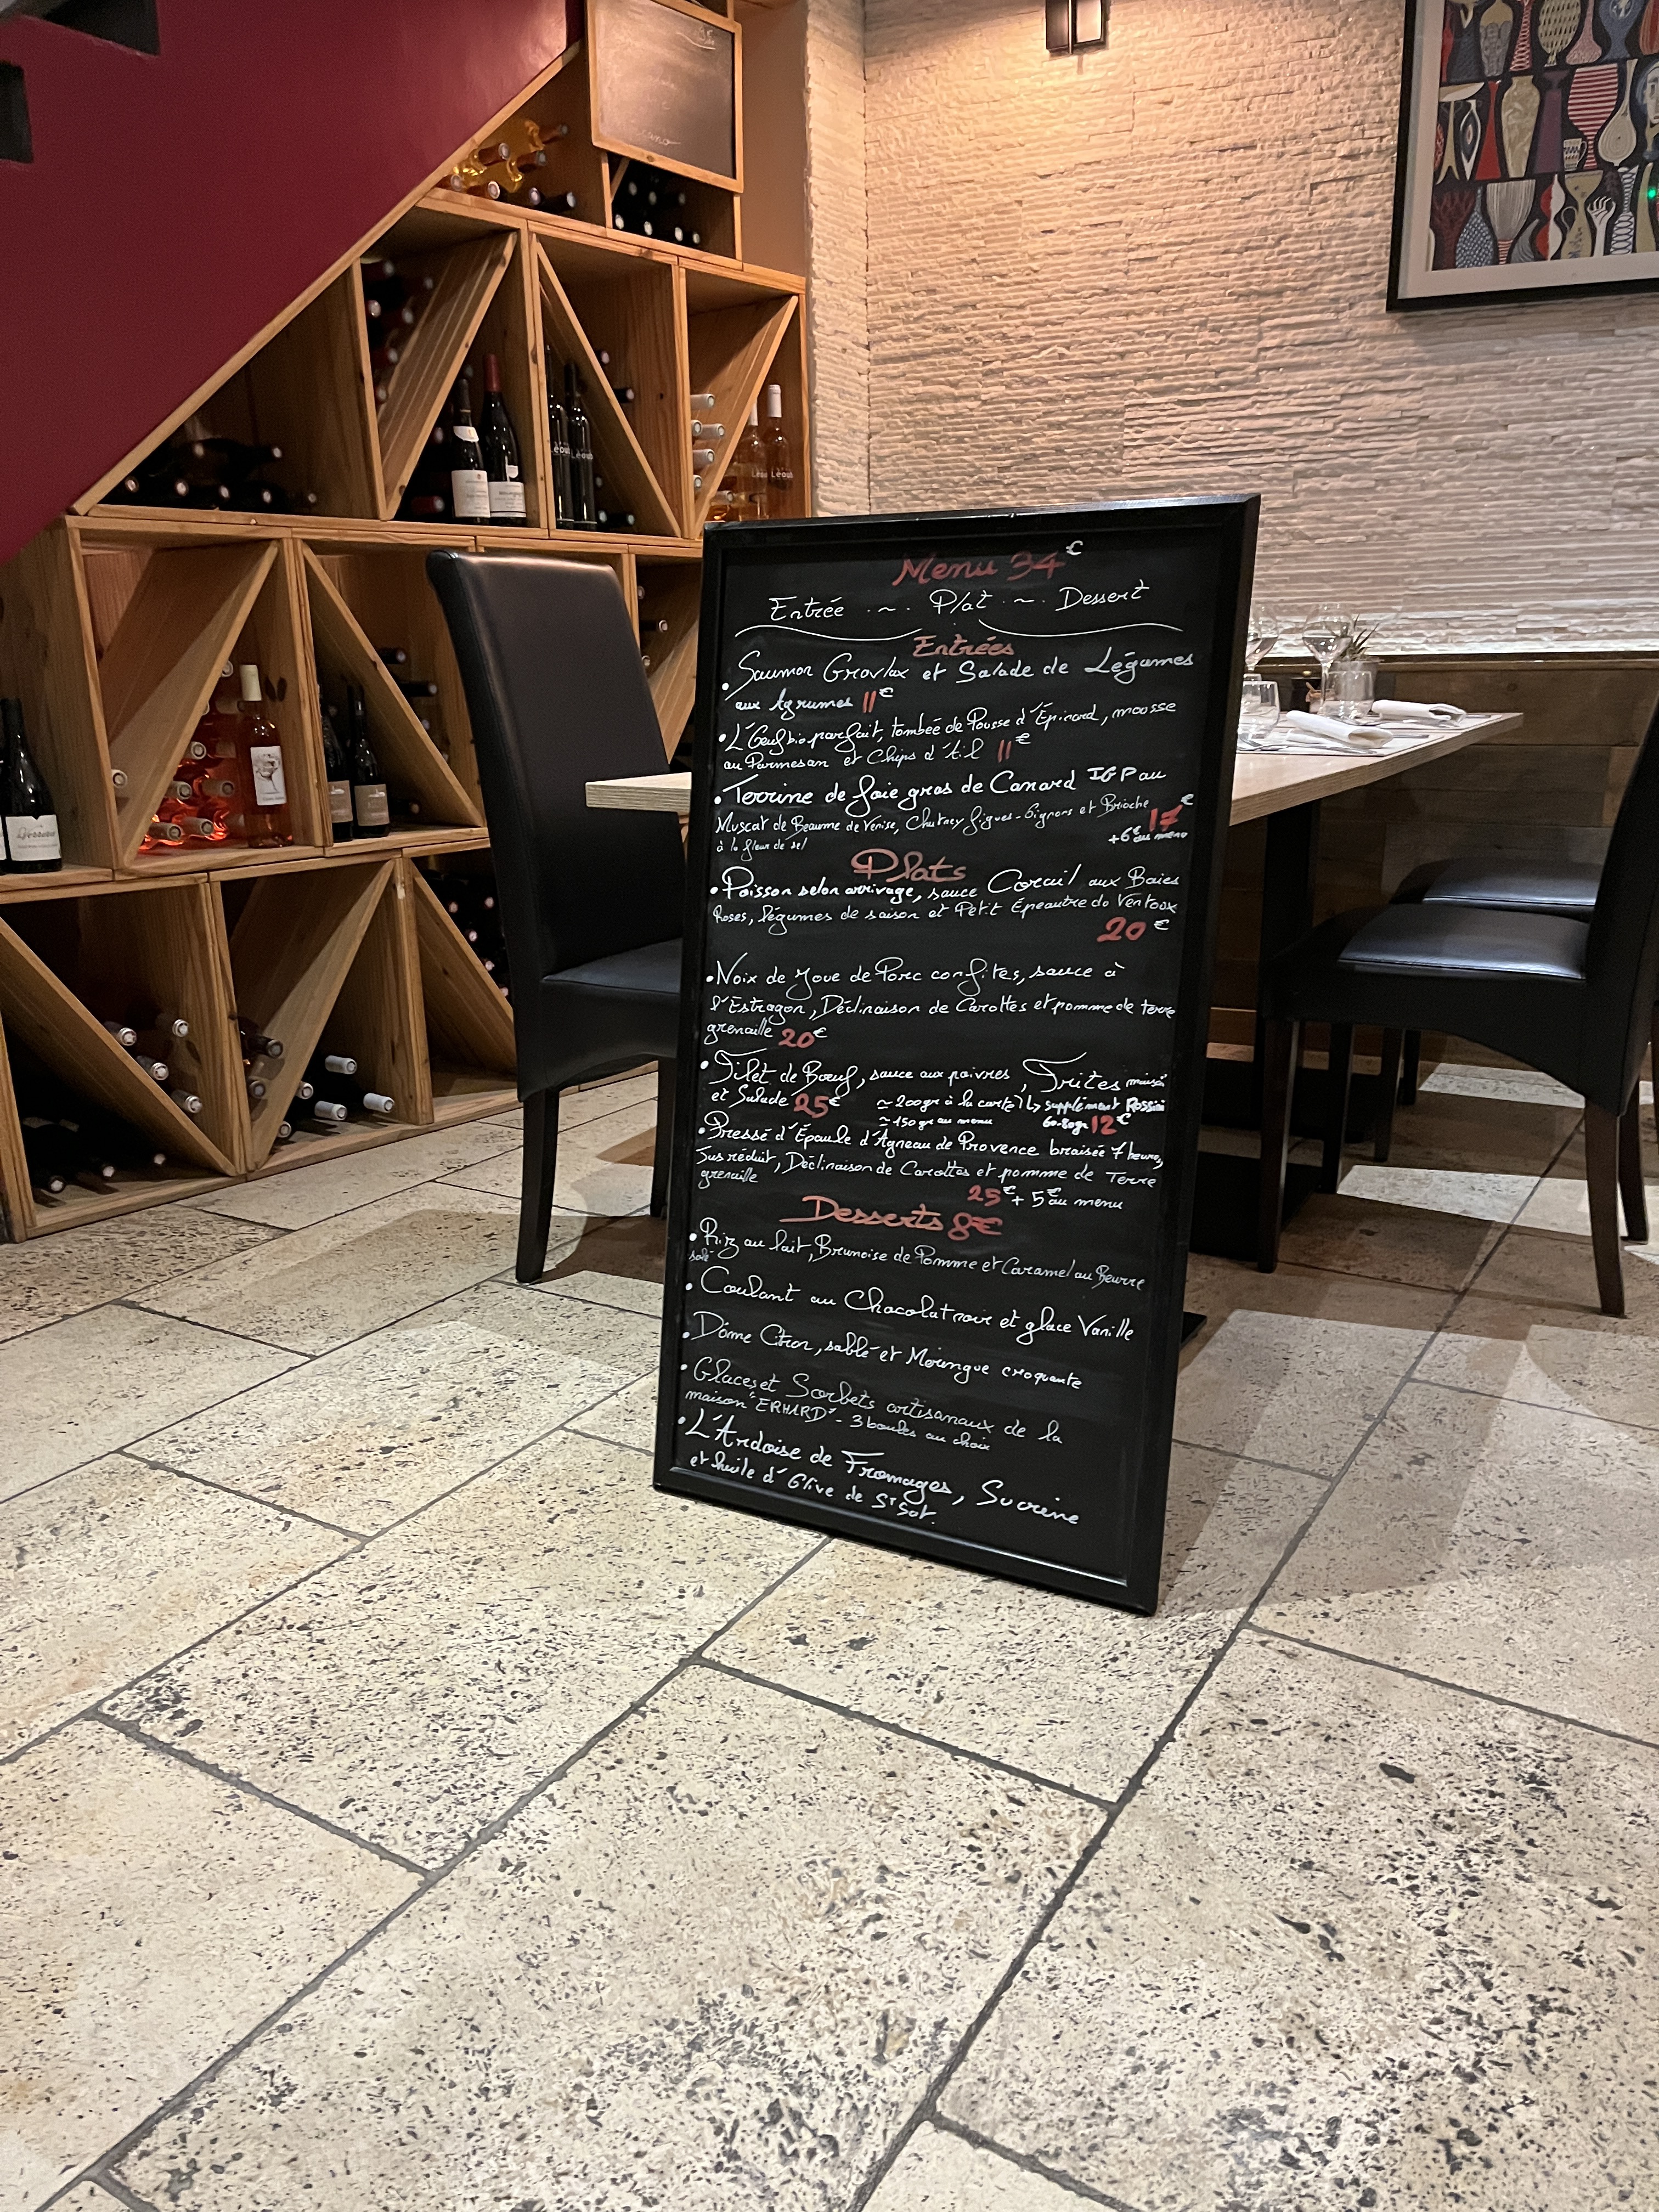 Menu 34€
Entrée ~ Plat ~ Dessert
Entrées
• Saumon Gravlax et Salade de Légumes
aux Agrumes 11€
• L'Oeuf bio parfait, tombée de Pousse d'Épinard, mousse
au Parmesan et Chips d'Ail 11€
• Terrine de foie gras de Canard IGP au
Muscat de Beaume de Venise, Chutney figues-Oignons et Brioche 17€
à la fleur de sel +6€ au menu
Plats
• Poisson selon arrivage, sauce Corail aux Baies
Roses, légumes de saison et Petit Épeautre du Ventoux
20€
• Noix de Joue de Porc confites, sauce à
l'Estragon, Déclinaison de Carottes et pomme de terre
grenaille 20€
• Filet de Bœuf, sauce aux poivres, Frites maison
et Salade 25€ ≃ 200gr à la carte ↳ supplément Rossini
≃ 150gr au menu 60-80gr 12€
• Pressé d'Épaule d'Agneau de Provence braisée 7 heures,
Jus réduit, Déclinaison de Carottes et pomme de Terre
grenaille
25€ + 5€ au menu
Desserts 8€
• Riz au lait, Brunoise de Pomme et Caramel au Beurre
salé
• Coulant au Chocolat noir et glace Vanille
• Dôme Citron, sablé et Meringue croquante
• Glaces et Sorbets artisanaux de la
maison "ERHARD" - 3 boules au choix
• L'Ardoise de Fromages, Sucrine
et huile d'Olive de
Léoub
Léoub